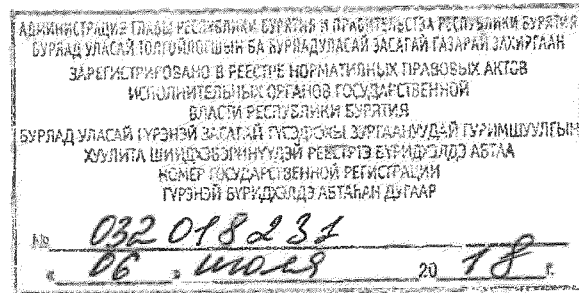 АДМИНИСТРАЦИЯ ГЛАВЫ РЕСПУБЛИКИ БУРЯТИЯ И ПРАВИТЕЛЬСТВА РЕСПУБЛИКИ БУРЯТИЯ
БУРЯАД УЛАСАЙ ТОЛГОЙЛОГШЫН БА БУРЯАД УЛАСАЙ ЗАСАГАЙ ГАЗАРАЙ ЗАХИРГААН
ЗАРЕГИСТРИРОВАНО В РЕЕСТРЕ НОРМАТИВНЫХ ПРАВОВЫХ АКТОВ
ИСПОЛНИТЕЛЬНЫХ ОРГАНОВ ГОСУДАРСТВЕННОЙ
ВЛАСТИ РЕСПУБЛИКИ БУРЯТИЯ
БУРЯАД УЛАСАЙ ГҮРЭНЭЙ ЗАСАГАЙ ГҮЙСЭДХЭХЫ ЗУРГААНУУДАЙ ГУРИМШУУЛҺАН
ХУУЛИТА ШИИДХЭБЭРИНҮҮДЭЙ РЕЕСТРТЭ БҮРИДХЭЛДЭ АБТАА
НОМЕР ГОСУДАРСТВЕННОЙ РЕГИСТРАЦИИ
ГҮРЭНЭЙ БҮРИДХЭЛДЭ АБТАҺАН ДУГААР
№ 032018231
" 06 " июля 20 18 г.